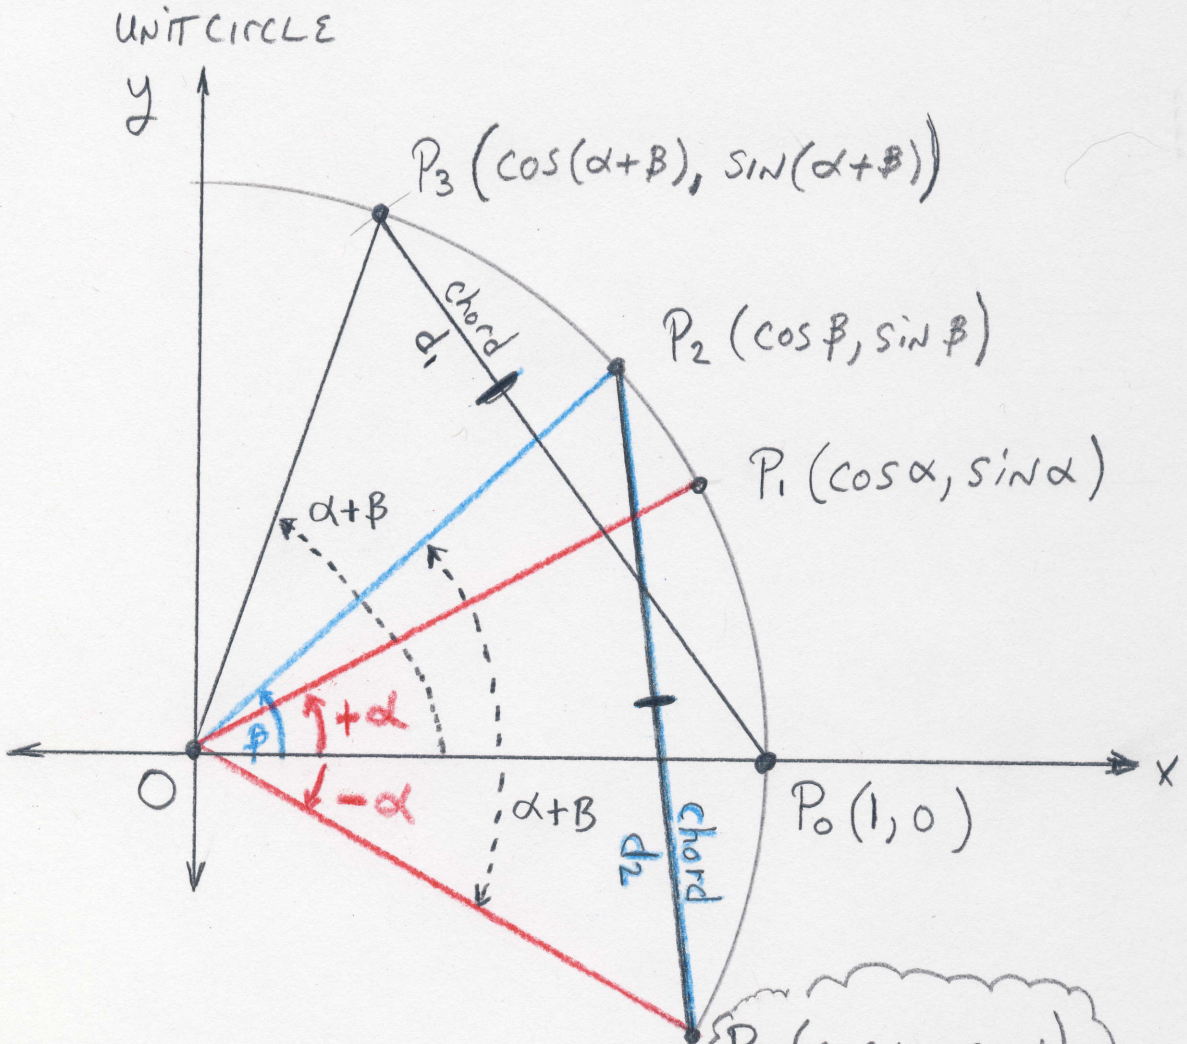 UNIT CIRCLE
y
P₃ (cos(α+β), sin(α+β))
chord
d₁
P₂ (cosβ, sinβ)
P₁ (cosα, sinα)
α+β
β
+α
-α
α+β
O
x
P₀ (1, 0)
chord
d₂